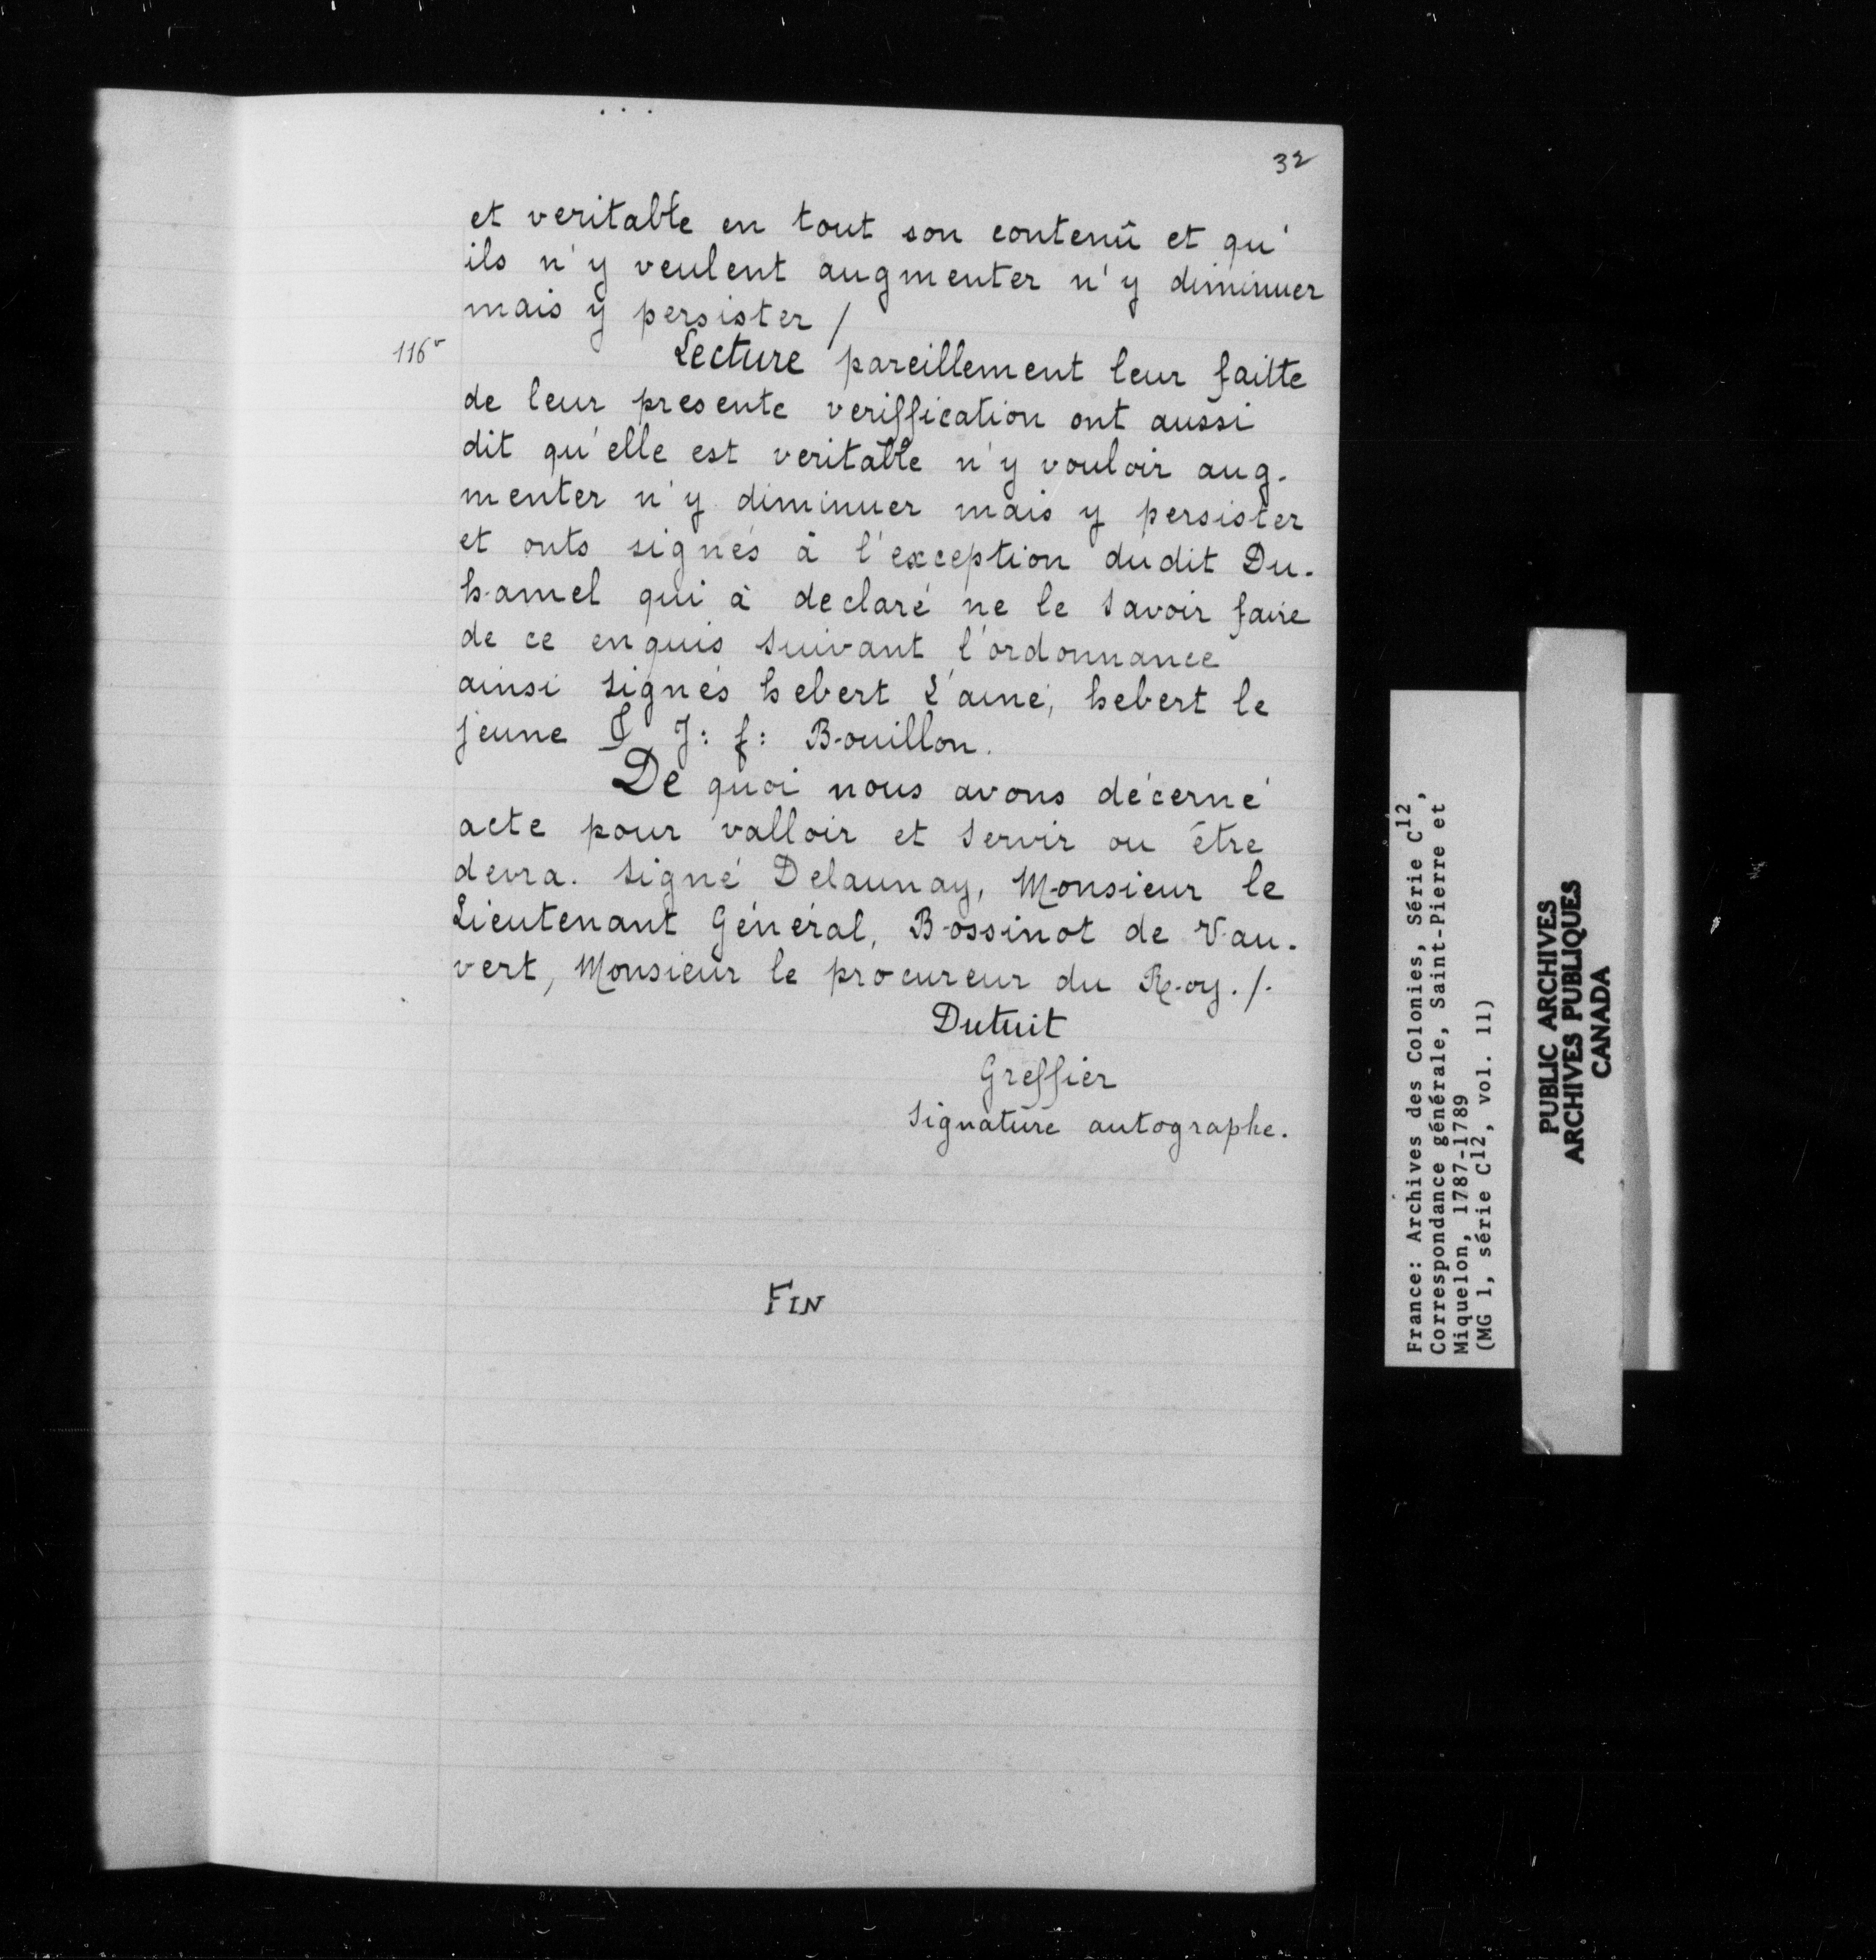 32
et veritable en tout son contenû et qu'
ils n'y veulent augmenter n'y diminuer
mais y persister /
116v
Lecture pareillement leur faitte
de leur presente veriffication ont aussi
dit qu'elle est veritable n'y vouloir aug-
menter n'y diminuer mais y persister
et onts signés à l'exception dudit Du-
hamel qui à declaré ne le savoir faire
de ce enquis suivant l'ordonnance
ainsi signés hebert L'ainé, hebert le
jeune J: f: Bouillon.
De quoi nous avons décerné
acte pour valloir et servir ou être
devra. signé Delaunay, Monsieur le
Lieutenant Général, Bossinot de Vau-
vert, Monsieur le procureur du Roy. /.
Dutuit
Greffier
signature autographe.
FIN
France: Archives des Colonies, Série C12,
Correspondance générale, Saint-Pierre et
Miquelon, 1787-1789
(MG 1, série C12, vol. 11)
PUBLIC ARCHIVES
ARCHIVES PUBLIQUES
CANADA